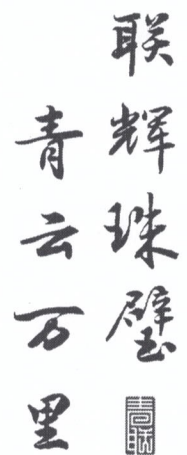 联辉珠璧
青云万里